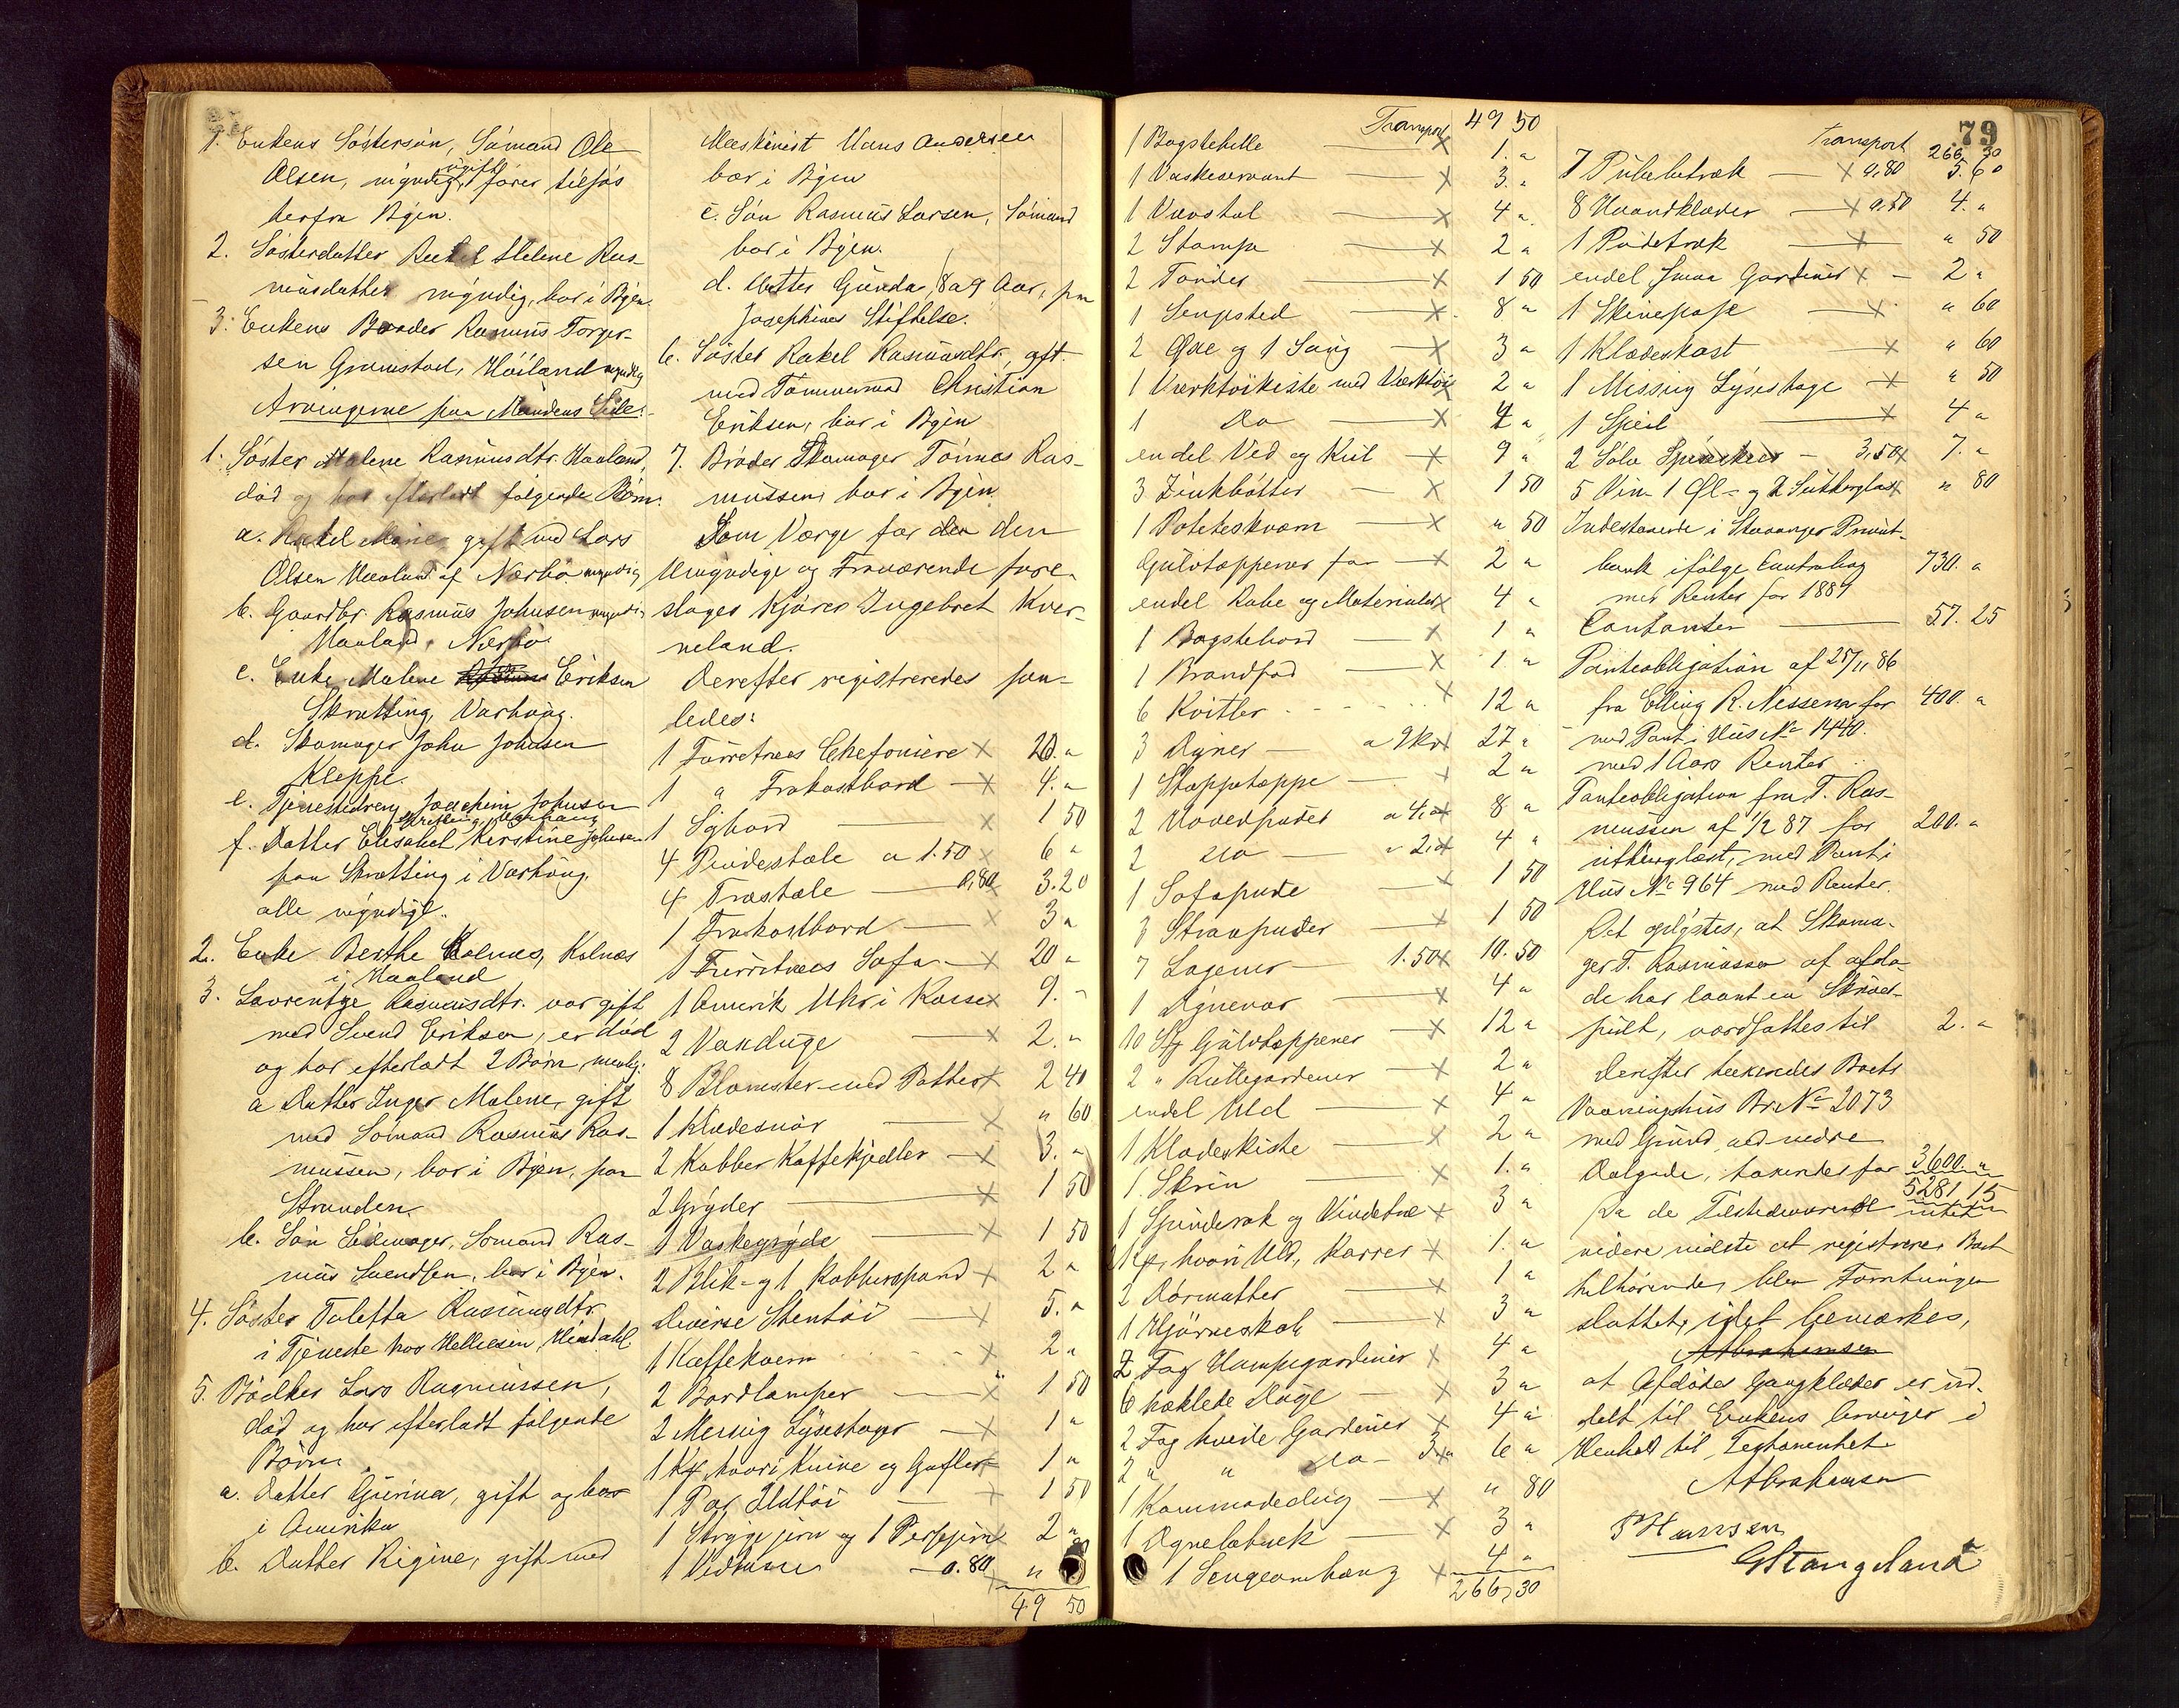 1. Enkens Søstersøn, Sømand Ole
Olsen, myndig, ugift, farer tilsjøs
herfra Byen.
2. Søsterdatter Rakel Helene Ras-
musdatter myndig, bor i Byen.
3. Enkens Broder Rasmus Torger-
sen Gramstad, Höiland myndig
Arvingerne paa Mandens Side:
1. Søster Malene Rasmusdtr. Haaland,
død og har efterladt følgende Børn:
a. Rakel Marie gift med Lars
Olsen Haaland af Nærbø myndig
b. Gaardbr. Rasmus Johnsen myndig
Haaland, Nærbø
c. Enke Malene Eriksen
Skratting, Varhaug.
d. Skomager John Johnsen
Kleppe.
e. Tjenestedreng Joachim Johnsen
Skretting, Varhaug
f. Datter Elisabet Kirstine Johnsen
paa Skrætting i Varhaug.
alle myndige.
2. Enke Berthe Kolnes, Kolnæs
i Haaland
3. Lavrentze Rasmusdtr. var gift
med Svend Eriksen, er død
og har efterladt 2 Børn, nemlig:
a Datter Inger Malene, gift
med Sømand Rasmus Ras-
mussen, bor i Byen, paa
Stranden.
b. Søn Seilmager, Sømand Ras-
mus Svendsen, bor i Byen.
4. Søster Toletta Rasmusdtr.
i Tjeneste hos Helliesen, Hindahl
5. Bødker Lars Rasmussen,
død og har efterladt følgende
Børn
a. Datter Gurina, gift og bor
i Amerika
b. Datter Rigine, gift med
Maskinist Hans Andersen
bor i Byen
c. Søn Rasmus Larsen, Sømand
bor i Byen.
d. Datter Gunda, 8 a 9 Aar, paa
Josephines Stiftelse.
6. Søster Rakel Rasmusdtr, gft.
med Tømmermand Christian
Eriksen, bor i Byen
7. Broder Skomager Tønnes Ras-
mussen, bor i Byen
Som Værge for den den
Umyndige og Fraværende fore-
slages Kjører Ingebret Kver-
neland.
Derefter registreredes saa-
ledes:
1 Furretræes Chefoniere × 20. "
1 " Frokostbord — × 4. "
1 Sybord × 1 50
4 Pindestole a 1.50 × 6 "
4 Træstole — 0,80 × 3.20
1 Frokostbord — × 3 "
1 Furretræes Sofa — × 20 "
1 Amerik Uhr i Kasse × 9. "
2 Voxduge × 2. "
8 Blomster med Potter × 2 40
1 Klædesnor × " 60
2 Kobber Kaffekjedler — × 3. "
2 Gryder — × 1 50
1 Vaskegryde — × 1 50
2 Blik- og 1 Kobberspand × 2 "
Diverse Stentøi × 5. "
1 Kaffekvern × 2 "
2 Bordlamper — × 1 50
2 Messing Lysestager — × 1 "
1 Kv. hvori Knive og Gafler × 1 "
1 Par Ildtøi — × 1 50
1 Strygejern og 1 Pressjern × 2 "
1 Vedkasse — 0.80 × "
49 50
Transport 49 50
1 Bogstehelle — × 1. "
1 Vaskeservant — × 3. "
1 Vævstol × 4 "
2 Stampe — × 2 "
2 Tønder — × 1 50
1 Sengsted — × 8 "
2 Øxe og 1 Saug — × 3 "
1 Værktøikiste med Værktøi × 2 "
1 Do — × 4 "
endel Ved og Kul — × 9 "
3 Zinkbøtter — × 1 50
1 Poteteskværn — × " 50
Gulvtæpperier for — × 2 "
endel Rabe og Materialer × 4 "
1 Bagstebord — × 1 "
1 Brandfad — × 1. "
6 Kvitler × 12 "
3 Dyner — a 9 kr × 27 "
1 Stoppetæppe × 2 "
2 Hovedpuder a 4,00 × 8 "
2 Do — " 2,00 4 "
1 Sofapude — × 1 50
3 Straapuder — × 1 50
7 Lagener — 1.50 × 10.50
1 Dynevar — × 4 "
10 St Gulvtæpperier — × 12 "
2 " Rullegardiner — × 2 "
endel Uld — × 4 "
1 Klædeskiste — × 2 "
1 Skrin — × 1. "
1 Spinderok og Vindetræ × 3 "
2 Kv. hvori Uld, Karrer × 1. "
2 Dørmatter — × 1 "
1 Hjørneskab — × 3 "
2 Fag Kampegardiner × 4 "
6 hæklede Duge — × 3 "
2 Fag hvide Gardiner × 4 "
2 " " Do — 3 × " 6 "
1 Kommodedug — × " 80
1 Dynebetræk — × 3 "
1 Sengeomhæng × 4 "
266,30
79
Transport 266 30
7 Pudebetræk — × 0,80 5.60
8 Haandklæder — × 0,50 4. "
1 Pudetræk — × " 50
endel smaa Gardiner × — 2 "
1 Skindpose — × " 60
1 Klædeskost — × " 60
1 Missing Lysestage — × " 50
1 Speil — × 4 "
2 Sølv Spiseskeer — 3,50 × 7. "
5 Vin- 1 Øl- og 2 Sukkerglas × " 80
Indestaaende i Stavanger Privat-
bank ifølge Contrabog 730. "
med Renter for 1889
Contanter — 57.25
Panteobligation af 25/11 86
fra Elling R. Nessem for 400. "
med Pant i Huus No 1440.
med 1 Aars Renter
Panteobligation fra T. Ras-
mussen af 1/2 87 for 200. "
uthinglæst, med Pant i
Hus No 964 med Renter.
Det oplystes, at Skoma-
ger T. Rasmussen af afdø-
de har laant en Skriver-
pult, værdsattes til 2. "
Derefter besigtedes Boets
Vaaningshus Br. No 2073
med Grund ved nedre
Dalgade, taxeredes for 3600 "
5281 15
Da de Tilstedeværende intet
videre vidste at registrere, Boet
tilhørende, blev Forretningen
sluttet, idet bemærkes,
Abrahamsen
at Afdødes Gangklæder er ud-
delt til Enkens Arvinger i
Henhold til Testamentet
Abrahamsen
P Hanssen
G Stangeland